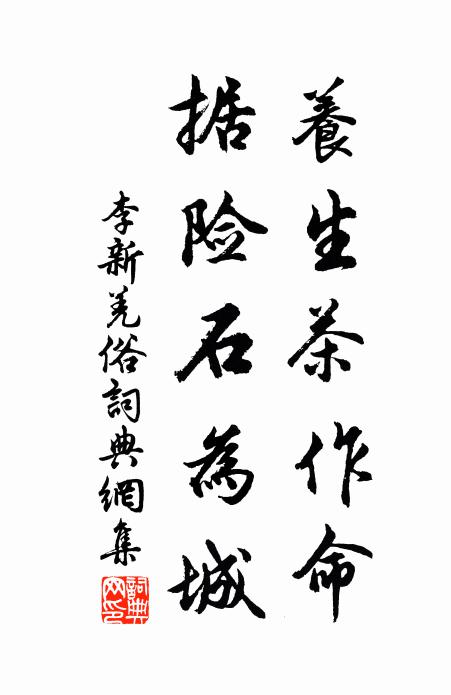 養生茶作命
据险石為城
李新羌俗詞典網集
詞典網印